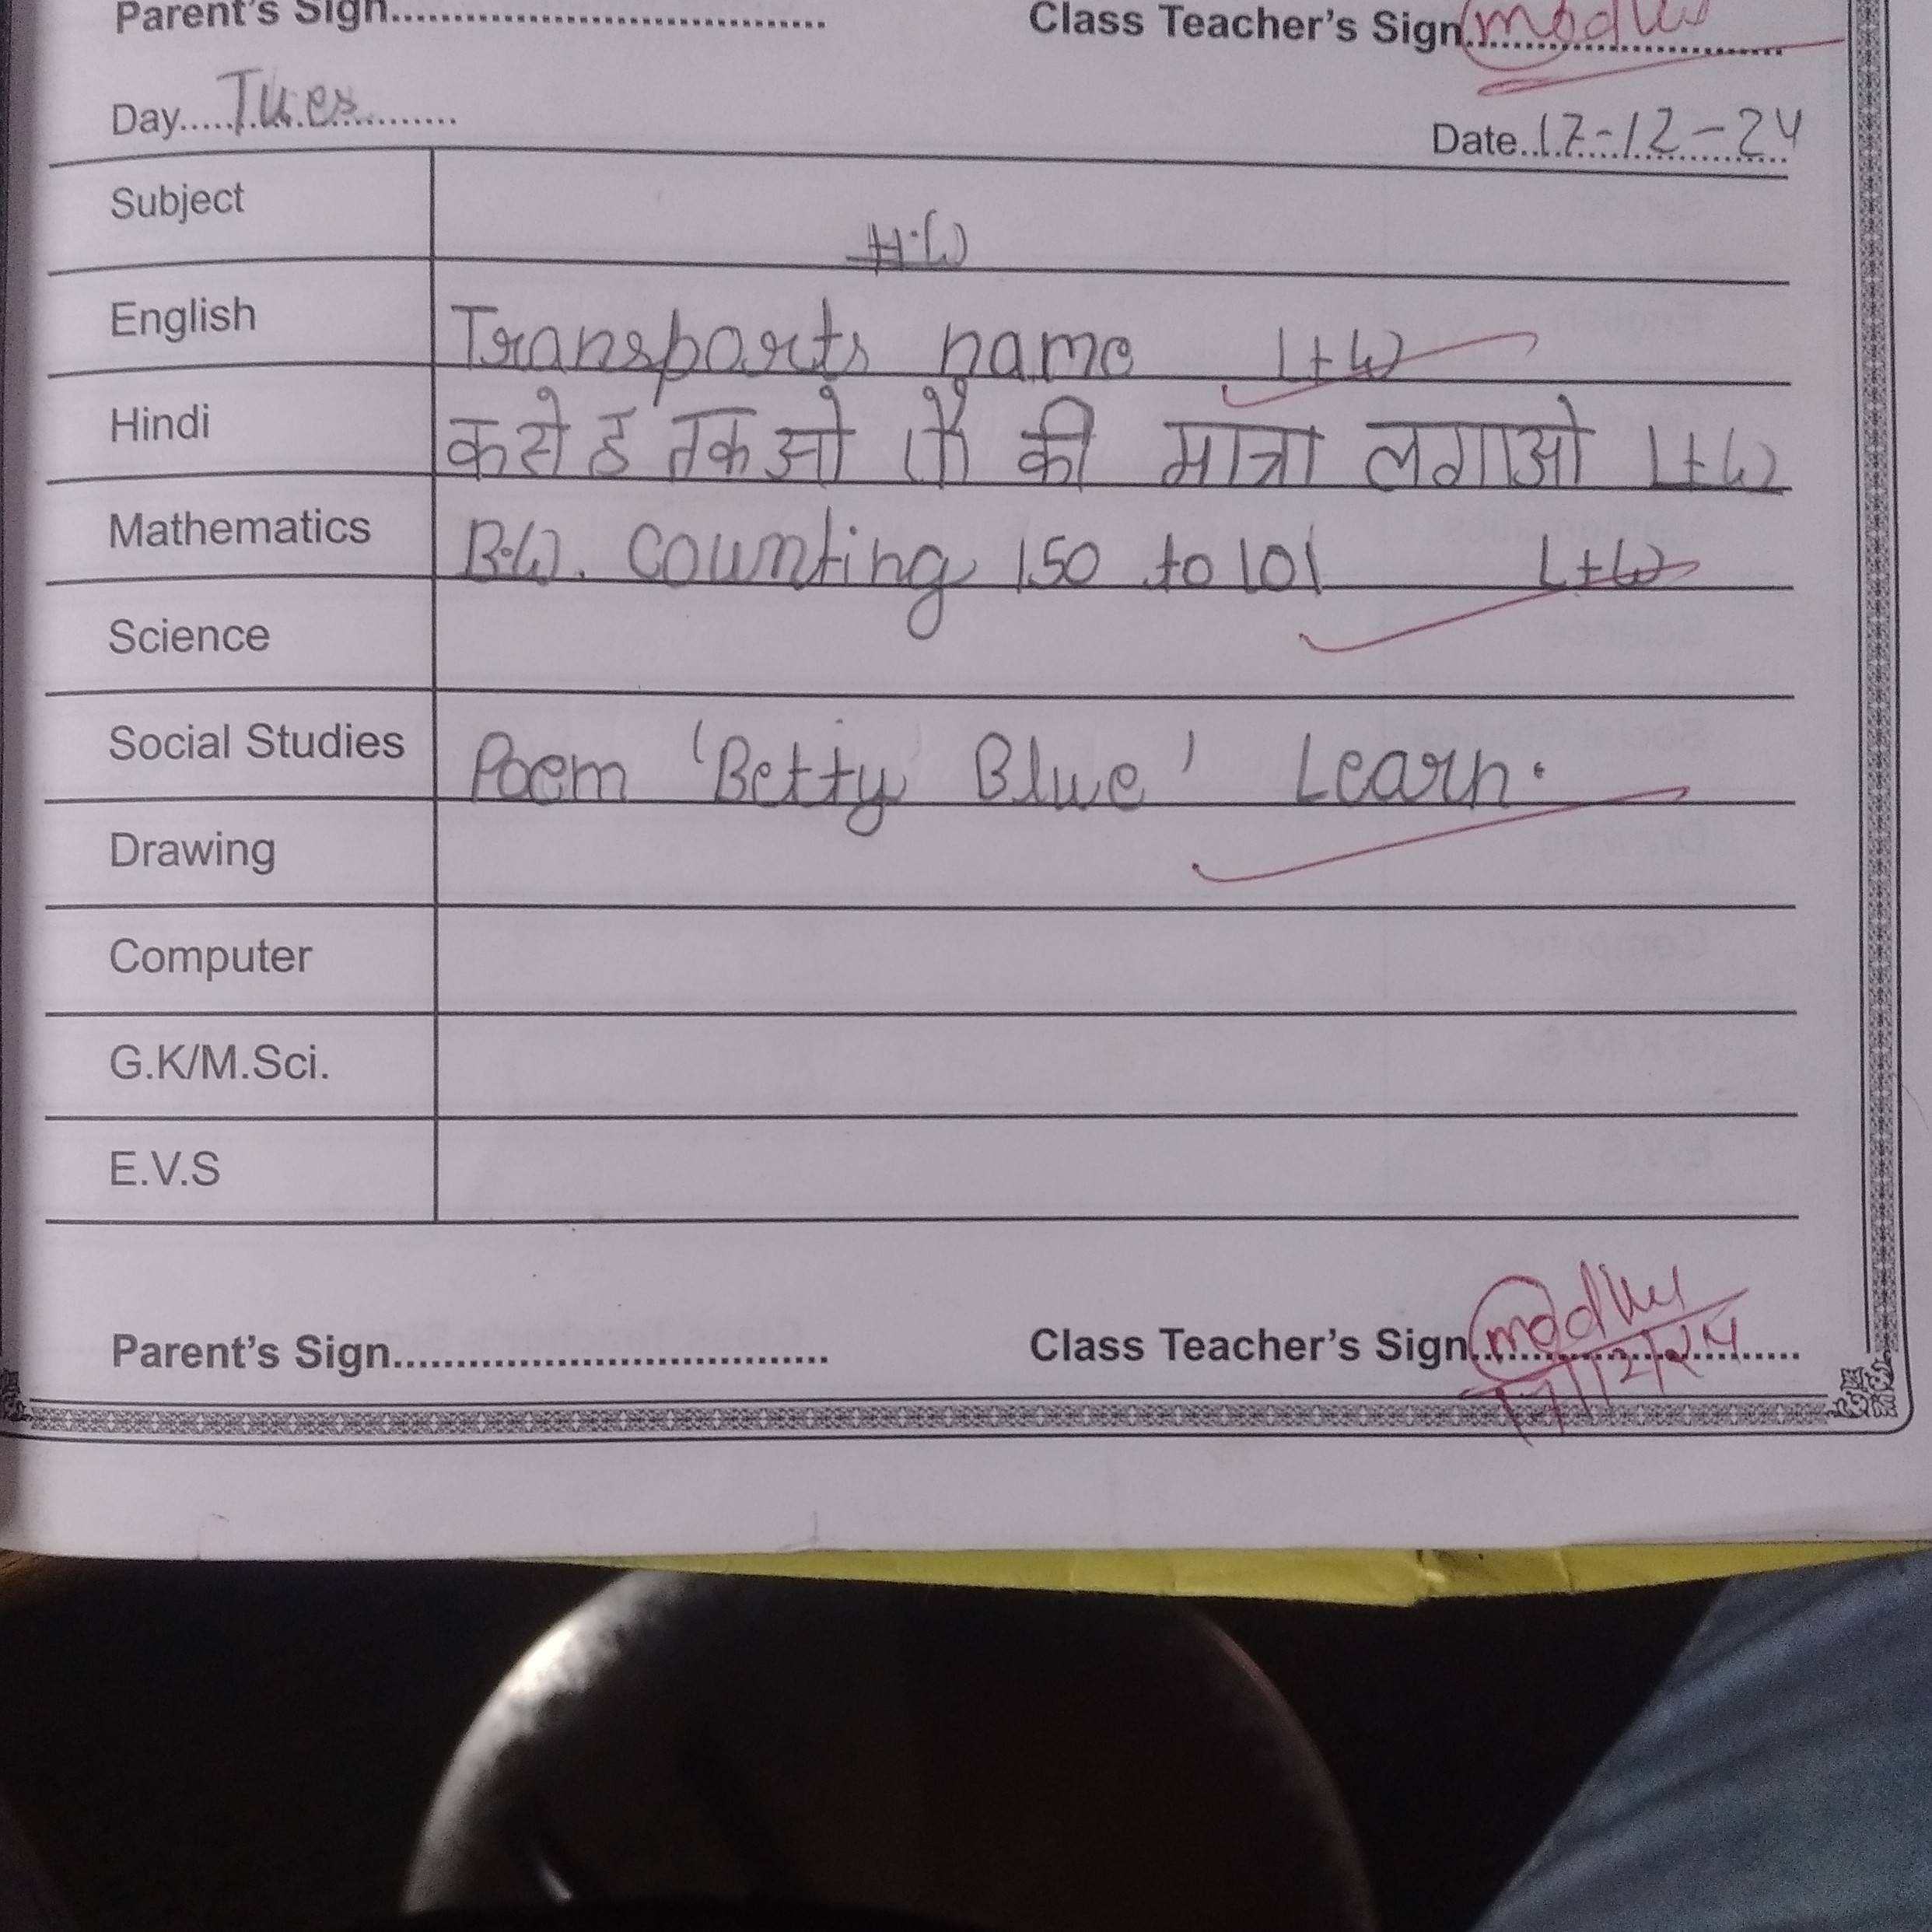 Parent's Sign.............................. Class Teacher's Sign..............................
Day.....Tues........... Date..17-12-24
Subject H.W
English Transports name L+W
Hindi क से ह तक ओ की मात्रा लगाओ L+W
Mathematics B.W. Counting 150 to 101 L+W
Science
Social Studies Poem 'Betty Blue' Learn.
Drawing
Computer
G.K/M.Sci.
E.V.S
Parent's Sign.................................. Class Teacher's Sign..............................
17/12/24